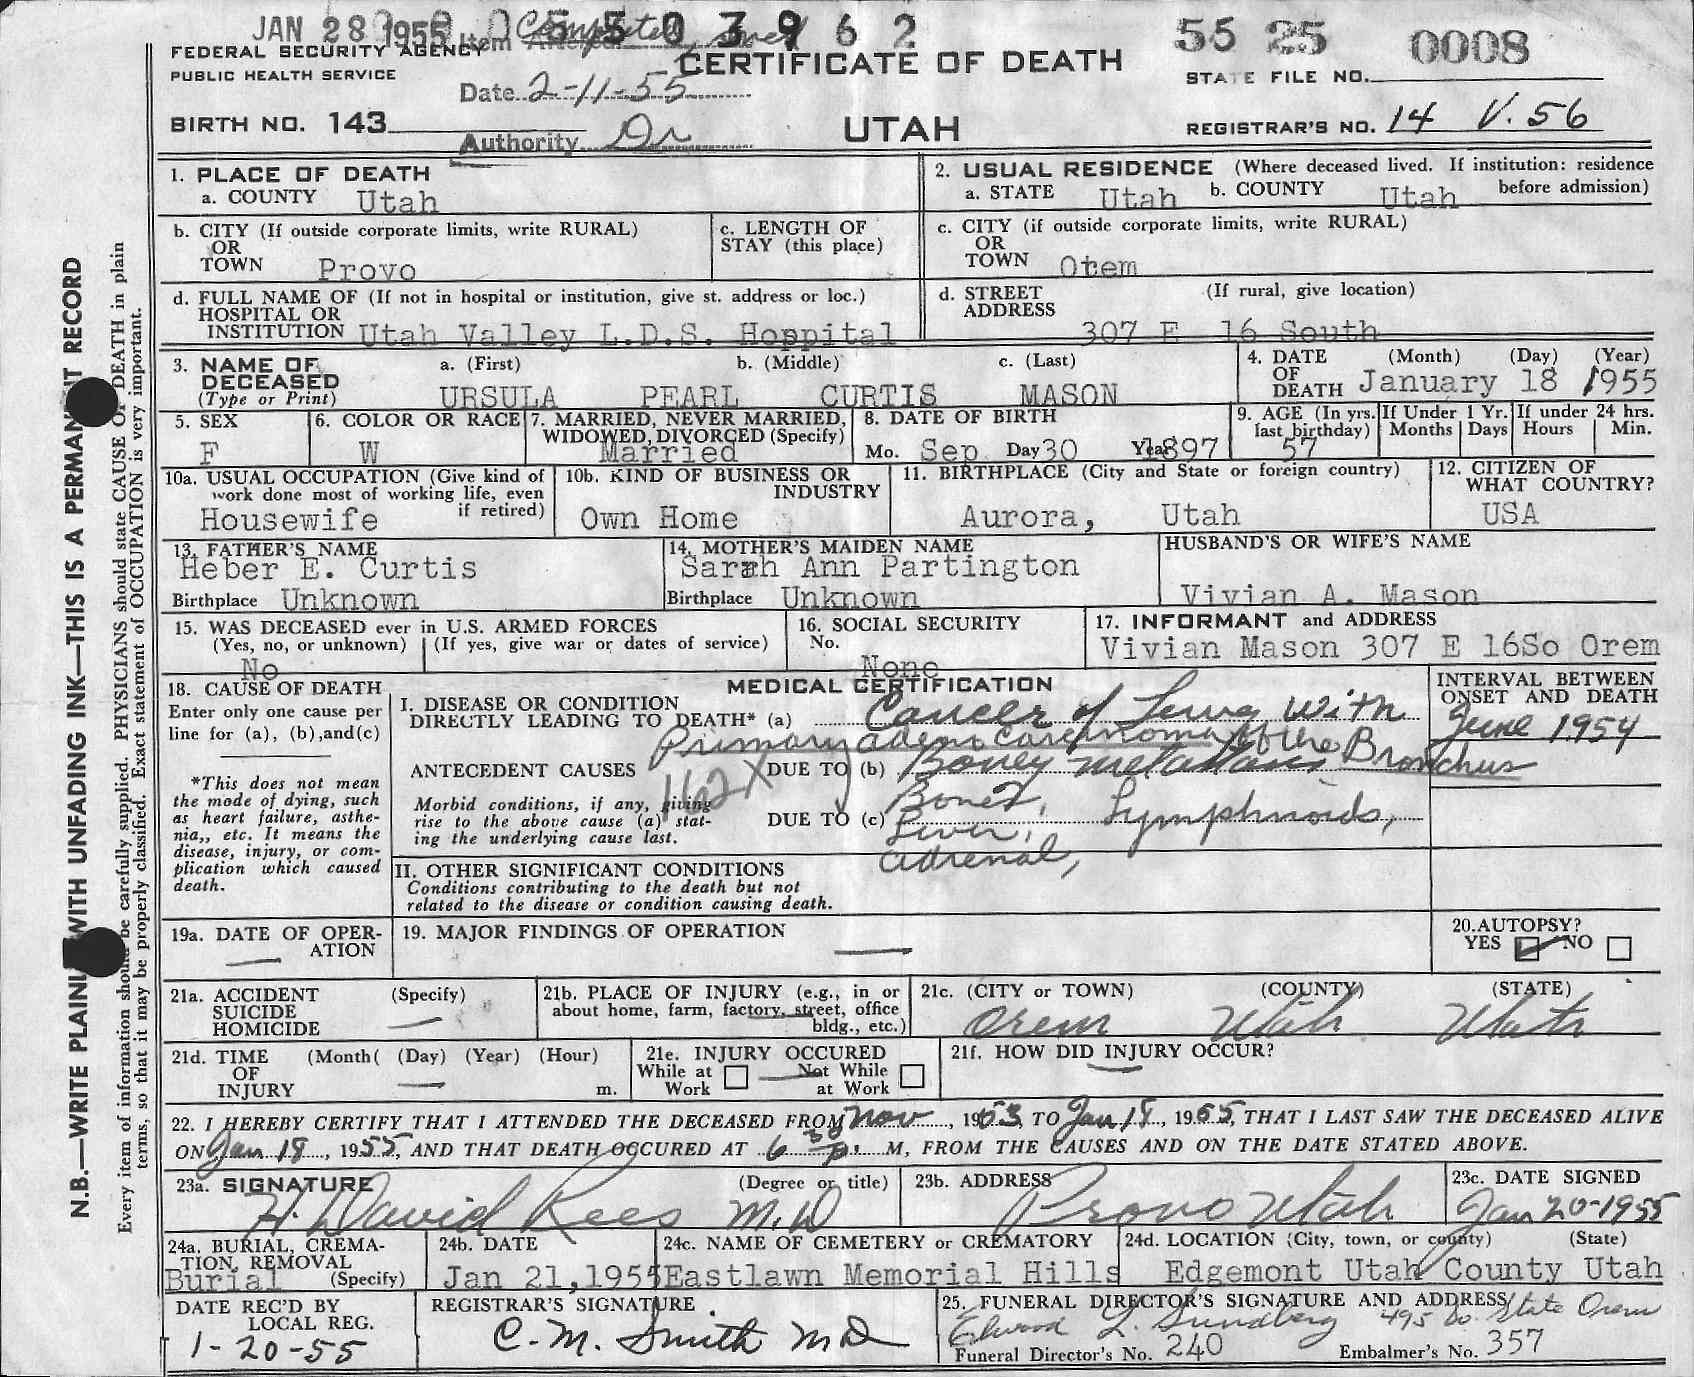 JAN 28 1955 Item Completed 5 5 0 3 9 6 2 55 25 0008
FEDERAL SECURITY AGENCY
PUBLIC HEALTH SERVICE
Date 2-11-55
CERTIFICATE OF DEATH
STATE FILE NO.
BIRTH NO. 143
Authority Dr
UTAH
REGISTRAR'S NO. 14 V. 56
1. PLACE OF DEATH
a. COUNTY Utah
2. USUAL RESIDENCE (Where deceased lived. If institution: residence before admission)
a. STATE Utah b. COUNTY Utah
b. CITY (If outside corporate limits, write RURAL)
OR
TOWN Provo
c. LENGTH OF
STAY (this place)
c. CITY (if outside corporate limits, write RURAL)
OR
TOWN Orem
d. FULL NAME OF (If not in hospital or institution, give st. address or loc.)
HOSPITAL OR
INSTITUTION Utah Valley L.D.S. Hospital
d. STREET (If rural, give location)
ADDRESS
307 E 16 South
3. NAME OF
DECEASED
(Type or Print)
a. (First) b. (Middle) c. (Last)
URSULA PEARL CURTIS MASON
4. DATE (Month) (Day) (Year)
OF
DEATH January 18 1955
5. SEX
F
6. COLOR OR RACE
W
7. MARRIED, NEVER MARRIED,
WIDOWED, DIVORCED (Specify)
Married
8. DATE OF BIRTH
Mo. Sep Day 30 Year 1897
9. AGE (In yrs.
last birthday)
57
If Under 1 Yr.
Months Days
If under 24 hrs.
Hours Min.
10a. USUAL OCCUPATION (Give kind of
work done most of working life, even
if retired)
Housewife
10b. KIND OF BUSINESS OR
INDUSTRY
Own Home
11. BIRTHPLACE (City and State or foreign country)
Aurora, Utah
12. CITIZEN OF
WHAT COUNTRY?
USA
13. FATHER'S NAME
Heber E. Curtis
Birthplace Unknown
14. MOTHER'S MAIDEN NAME
Sarah Ann Partington
Birthplace Unknown
HUSBAND'S OR WIFE'S NAME
Vivian A. Mason
15. WAS DECEASED ever in U.S. ARMED FORCES
(Yes, no, or unknown) (If yes, give war or dates of service)
No
16. SOCIAL SECURITY
No.
None
17. INFORMANT and ADDRESS
Vivian Mason 307 E 16So Orem
18. CAUSE OF DEATH
Enter only one cause per
line for (a), (b), and (c)
*This does not mean
the mode of dying, such
as heart failure, asthe-
nia,, etc. It means the
disease, injury, or com-
plication which caused
death.
MEDICAL CERTIFICATION
I. DISEASE OR CONDITION
DIRECTLY LEADING TO DEATH* (a) Cancer of Lung With
Primary adeno carcinoma of the Bronchus
ANTECEDENT CAUSES
DUE TO (b) Boney metastasis
162X
Morbid conditions, if any, giving
rise to the above cause (a) stat-
ing the underlying cause last.
Bones,
DUE TO (c) Liver, Lymphnoids,
adrenal,
INTERVAL BETWEEN
ONSET AND DEATH
June 1954
II. OTHER SIGNIFICANT CONDITIONS
Conditions contributing to the death but not
related to the disease or condition causing death.
19a. DATE OF OPER-
ATION
19. MAJOR FINDINGS OF OPERATION
20. AUTOPSY?
YES NO
21a. ACCIDENT (Specify)
SUICIDE
HOMICIDE
21b. PLACE OF INJURY (e.g., in or
about home, farm, factory, street, office
bldg., etc.)
21c. (CITY or TOWN) (COUNTY) (STATE)
Orem Utah Utah
21d. TIME (Month( (Day) (Year) (Hour)
OF
INJURY m.
21e. INJURY OCCURED
While at Not While
Work at Work
21f. HOW DID INJURY OCCUR?
22. I HEREBY CERTIFY THAT I ATTENDED THE DECEASED FROM Nov, 1953 TO Jan 18, 1955, THAT I LAST SAW THE DECEASED ALIVE
ON Jan 18, 1955, AND THAT DEATH OCCURED AT 6 30 p. M, FROM THE CAUSES AND ON THE DATE STATED ABOVE.
23a. SIGNATURE (Degree or title)
H. David Rees M.D
23b. ADDRESS
Provo Utah
23c. DATE SIGNED
Jan 20-1955
24a. BURIAL, CREMA-
TION, REMOVAL
Burial (Specify)
24b. DATE
Jan 21, 1955
24c. NAME OF CEMETERY or CREMATORY
Eastlawn Memorial Hills
24d. LOCATION (City, town, or county) (State)
Edgemont Utah County Utah
DATE REC'D BY
LOCAL REG.
1-20-55
REGISTRAR'S SIGNATURE
C. M. Smith M D
25. FUNERAL DIRECTOR'S SIGNATURE AND ADDRESS
Elwood L. Sundberg 495 So. State Orem
Funeral Director's No. 240 Embalmer's No. 357
N.B.—WRITE PLAINLY WITH UNFADING INK—THIS IS A PERMANENT RECORD
Every item of information should be carefully supplied. PHYSICIANS should state CAUSE OF DEATH in plain
terms, so that it may be properly classified. Exact statement of OCCUPATION is very important.